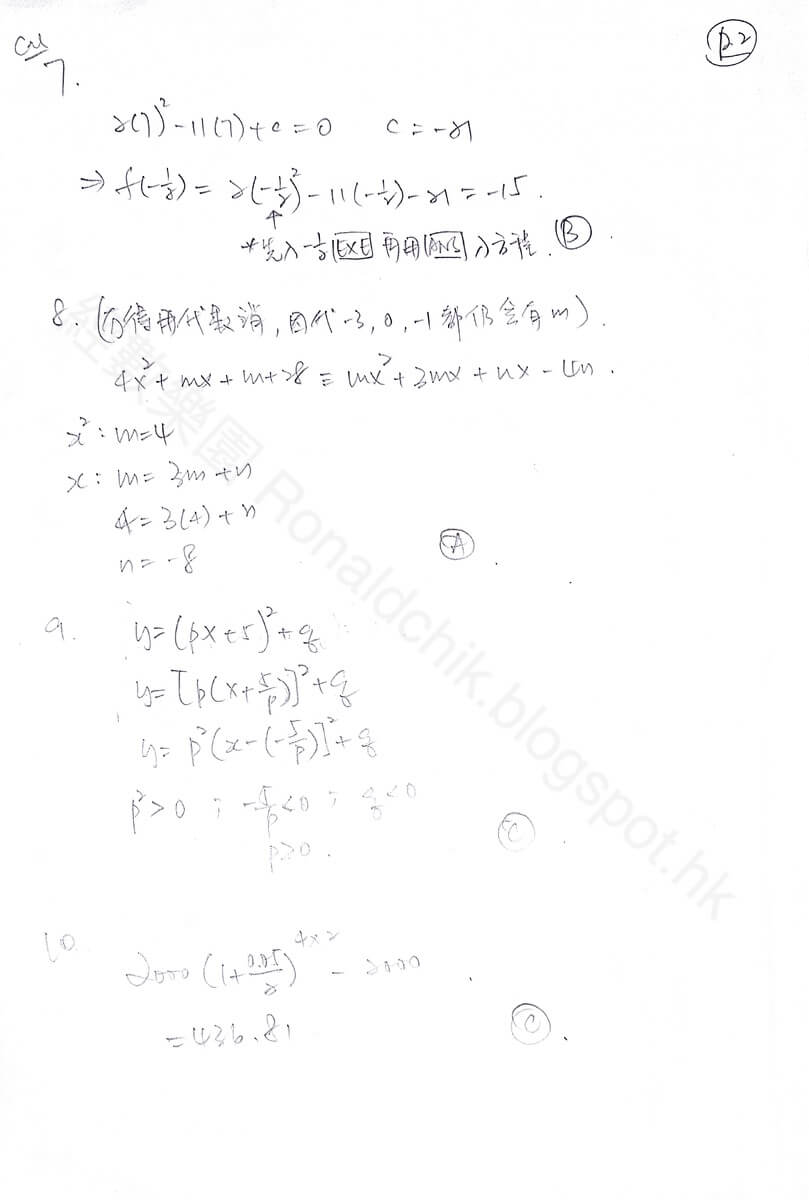 P.2
7.
2(7)²-11(7)+c=0 c=-21
⇒ f(-1/2)=2(-1/2)²-11(-1/2)-21=-15.
*先入-1/2 EXE 再用 ANS 入方程. B.
8. (唔得用代數消,因代-3,0,-1都仍會有m).
4x²+mx+m+28≡mx²+3mx+nx-4n.
x²: m=4
x: m=3m+n
4=3(4)+n
n=-8
A.
9. y=(px+5)²+q
y=[p(x+5/p)]²+q
y=p²(x-(-5/p)]²+q
p²>0 ; -5/p<0 ; q<0
p>0. C.
10.
2000(1+0.05/2)^(4×2) - 2000
=436.81 C.
紅動樂園 Ronaldchik.blogspot.hk